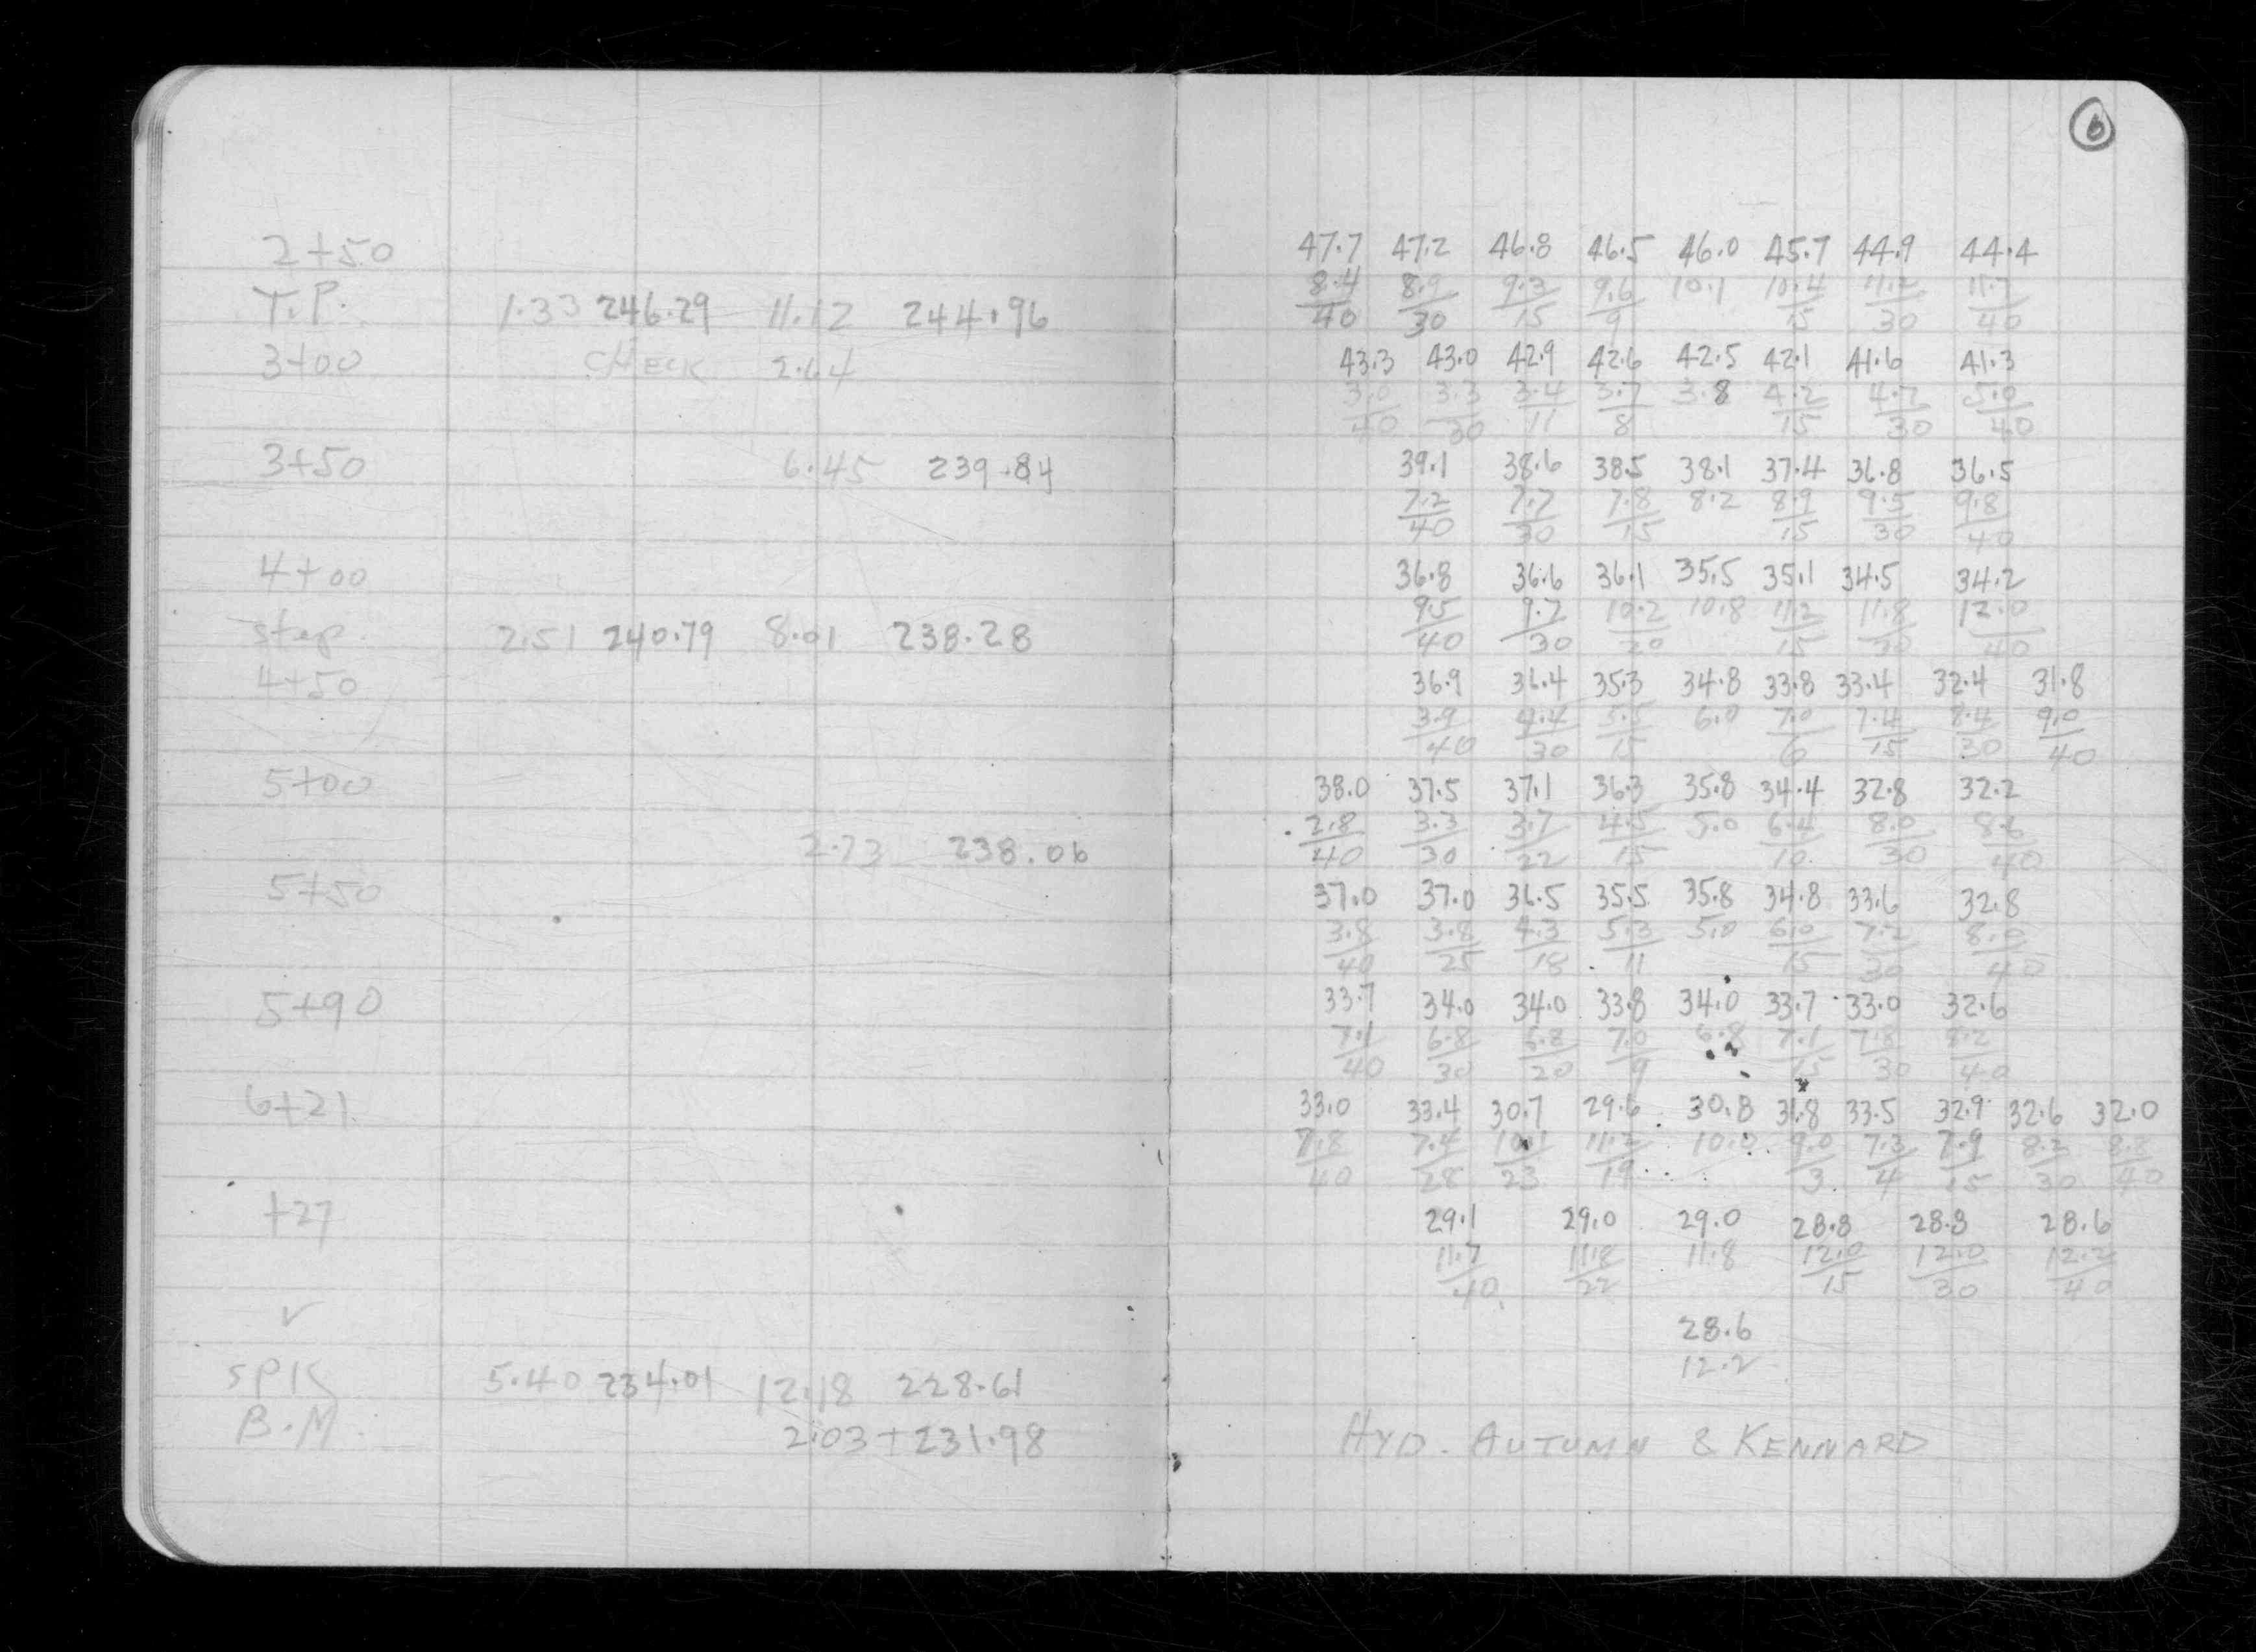 6
2+50 47.7 47.2 46.8 46.5 46.0 45.7 44.9 44.4
8.4/40 8.9/30 9.3/15 9.6/9 10.1 10.4/15 11.2/30 11.7/40
T.P. 1.33 246.29 11.12 244.96
3+00 CHECK 2.64 43.3 43.0 42.9 42.6 42.5 42.1 41.6 41.3
3.0/40 3.3/30 3.4/11 3.7/8 3.8 4.2/15 4.7/30 5.0/40
3+50 6.45 239.84 39.1 38.6 38.5 38.1 37.4 36.8 36.5
7.2/40 7.7/30 7.8/15 8.2 8.9/15 9.5/30 9.8/40
4+00 36.8 36.6 36.1 35.5 35.1 34.5 34.2
9.5/40 9.7/30 10.2/20 10.8 11.2/15 11.8/30 12.0/40
step 2.51 240.79 8.01 238.28
4+50 36.9 36.4 35.3 34.8 33.8 33.4 32.4 31.8
3.9/40 4.4/30 5.5/15 6.0 7.0/6 7.4/15 8.4/30 9.0/40
5+00 38.0 37.5 37.1 36.3 35.8 34.4 32.8 32.2
2.8/40 3.3/30 3.7/22 4.5/15 5.0 6.4/10 8.0/30 8.6/40
2.73 238.06
5+50 37.0 37.0 36.5 35.5 35.8 34.8 33.6 32.8
3.8/40 3.8/25 4.3/18 5.3/11 5.0 6.0/15 7.2/30 8.0/40
5+90 33.7 34.0 34.0 33.8 34.0 33.7 33.0 32.6
7.1/40 6.8/30 6.8/20 7.0/9 6.8 7.1/15 7.8/30 8.2/40
6+21 33.0 33.4 30.7 29.6 30.8 31.8 33.5 32.9 32.6 32.0
7.8/40 7.4/28 10.1/23 11.2/19 10.0 9.0/3 7.3/4 7.9/15 8.2/30 8.8/40
+27 29.1 29.0 29.0 28.8 28.8 28.6
11.7/40 11.8/22 11.8 12.0/15 12.0/30 12.2/40
✓ 28.6
12.2
SPIK 5.40 234.01 12.18 228.61
B.M. 2.03+231.98 HYD. AUTUMN & KENNARD